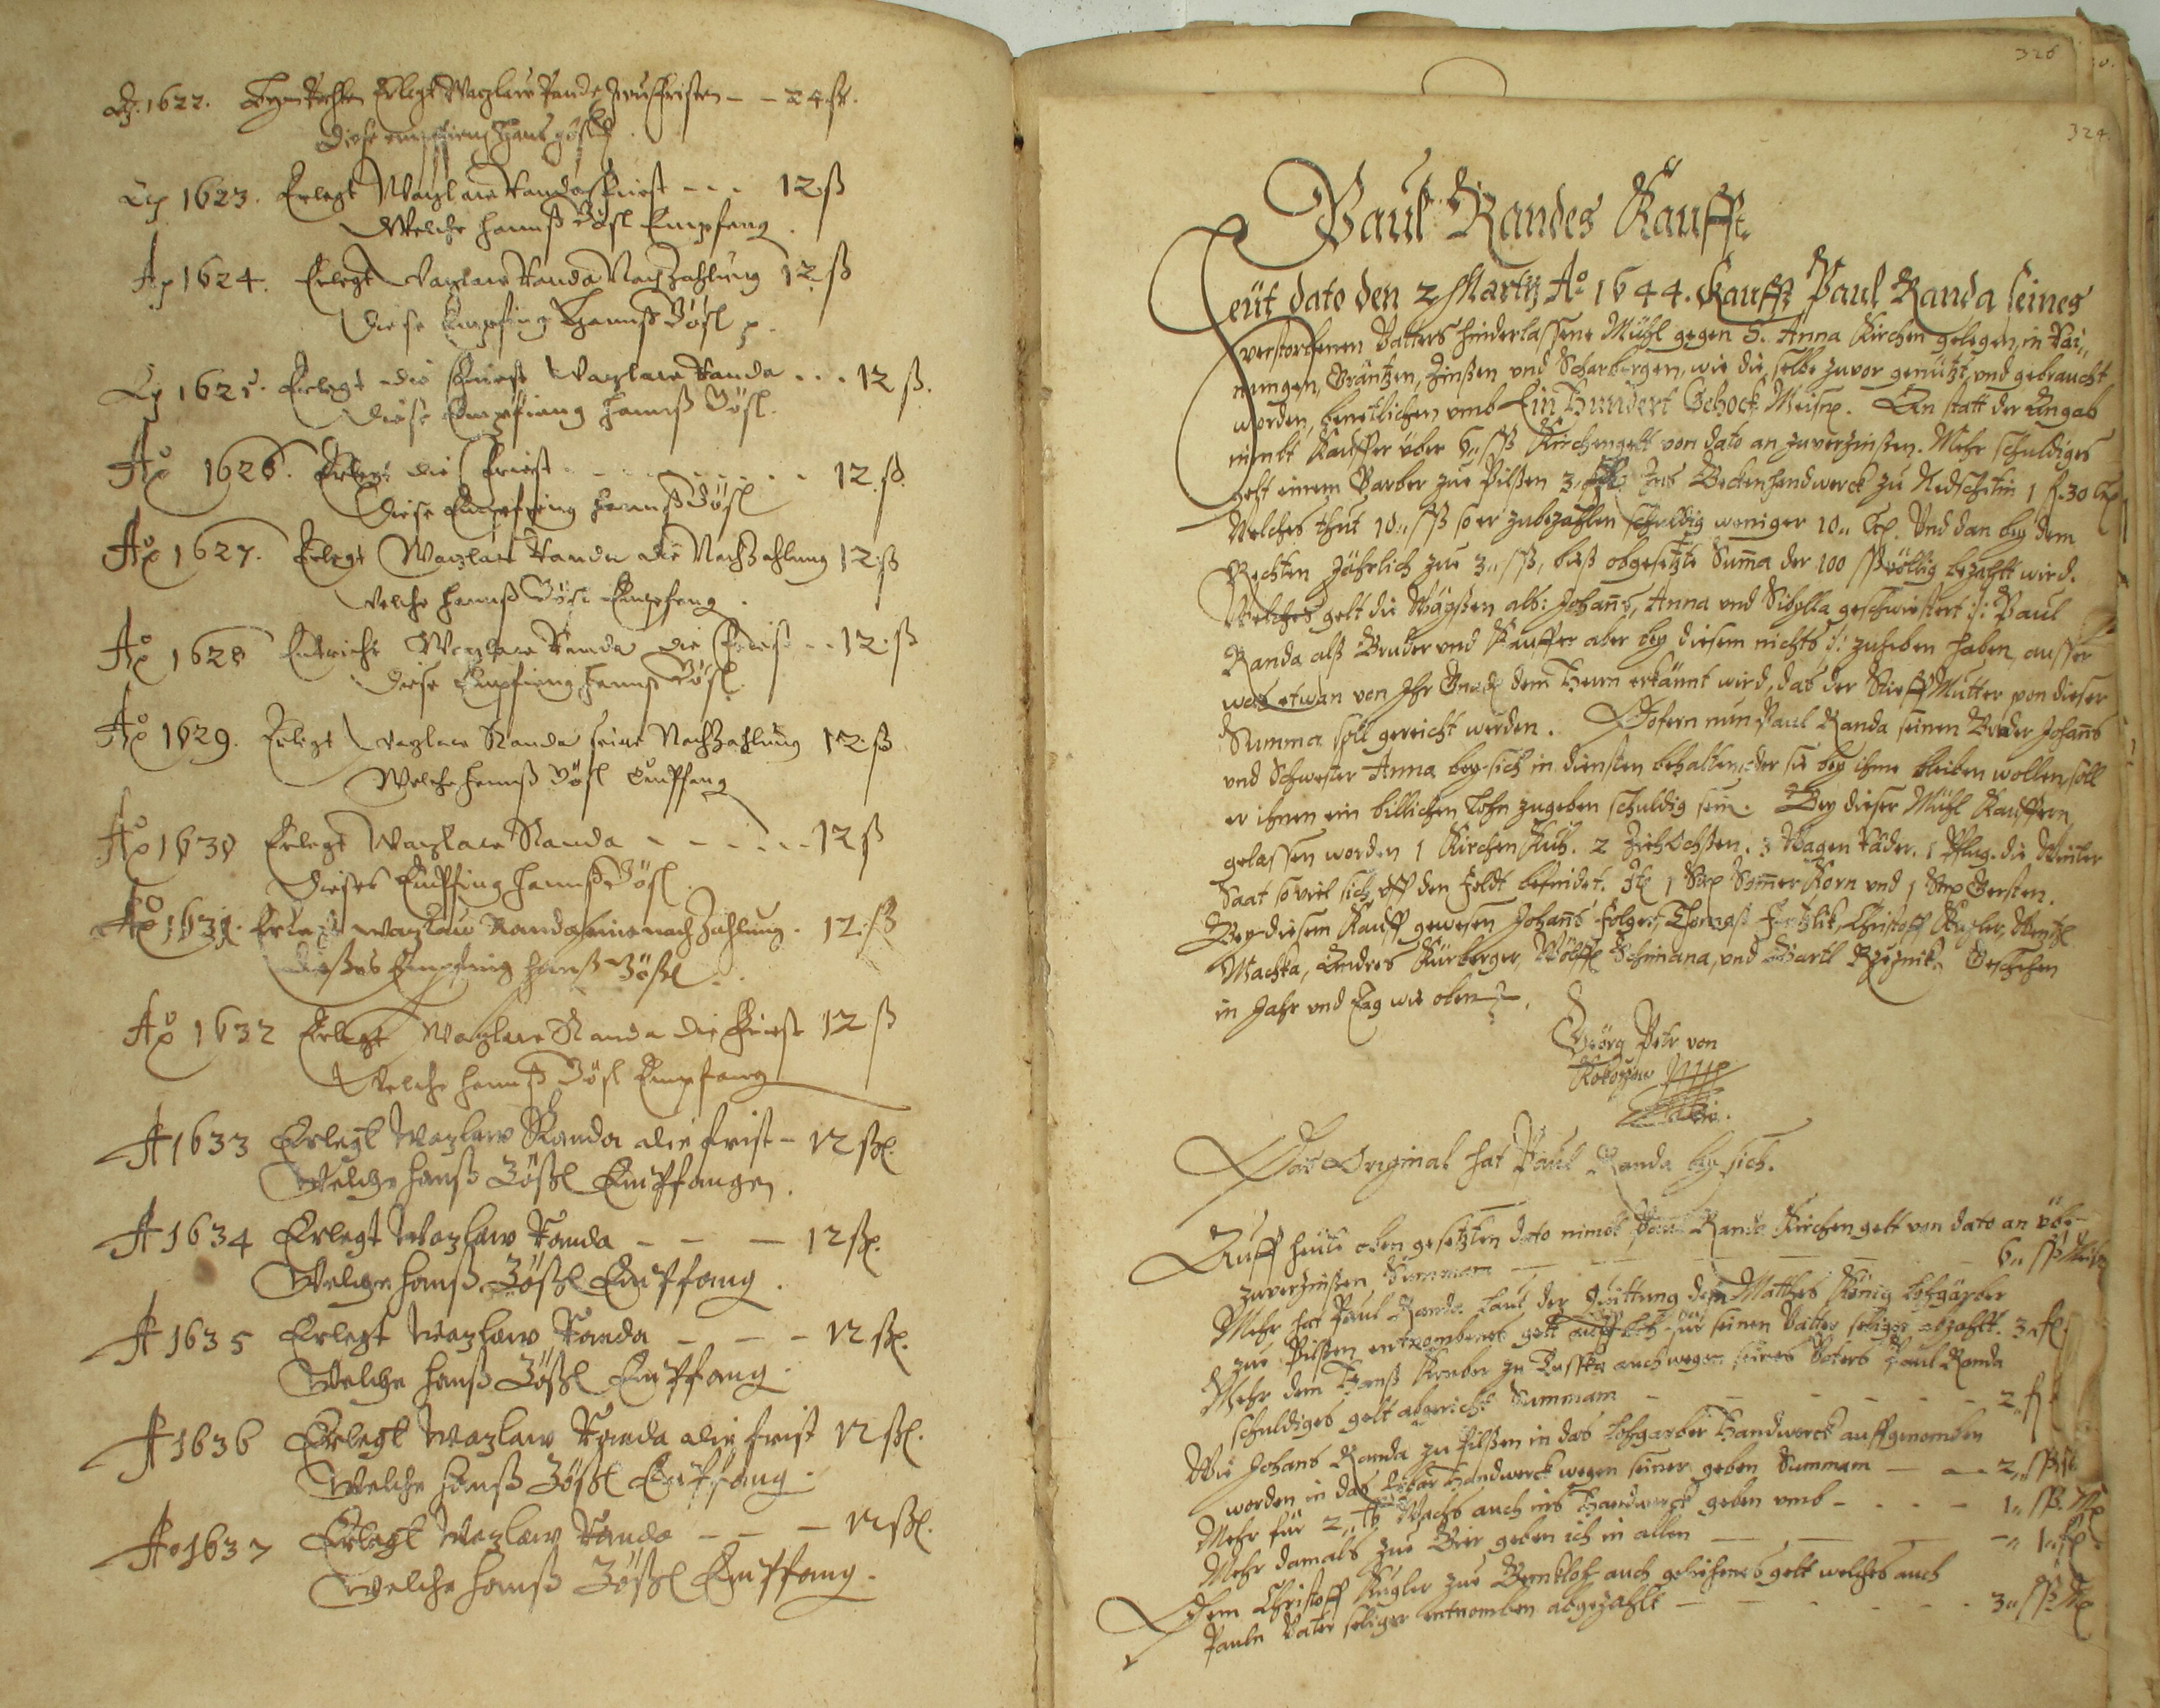 Ao. 1622. Erlegt Wazlaw Randa zwu Fristen - - 24 ß.
Diese empfieng Hans Zößl
Ao 1623. Erlegt Wazlaw Randa Friest - - - 12 ß
Welche Hannß Zösl Empfang.
Ao 1624. Erlegt Wazlaw Randa Nachzahlung 12 ß
Diese Empfing Hannß Zösl
Ao 1625. Erlegt die Friest Wazlaw Randa . . . 12 ß.
Diese Empfieng Hannß Zösl.
Ao 1626. Erlegt die Friest . - - - - - - - 12. ß.
Diese Empfieng Hannß Zösl
Ao 1627. Erlegt Wazlaw Randa die Nachzahlung 12: ß
Welche Hannß Zösl Empfang.
Ao 1628 Entricht Wazlaw Randa die Friest - - 12: ß
Diese Empfieng Hannß Zösl.
Ao 1629. Erlegt Wazlaw Randa seine Nachzahlung 12: ß
Welche Hannß Zösl Empfang
Ao 1630 Erlegt Wazlaw Randa - - - - - 12 ß
Dieses Empfing Hannß Zösl.
Ao 1631. Erlegt Wazlaw Randa seine nach Zahlung. 12: ß
Dießes Empfing Hanß Zößl.
Ao 1632 Erlegt Wazlaw Randa die Friest 12 ß
Welche Hannß Zösl Empfang
A 1633 Erlegt Wazlaw Randa die frist - 12 ßl.
Welche Hanß Zößl Empfangen.
A 1634 Erlegt Wazlaw Randa - - - 12 ßl.
Welche Hanß Zößl Empfang.
A 1635 Erlegt Wazlaw Randa - - - 12 ßl.
Welche Hanß Zößl Empfang.
A 1636 Erlegt Wazlaw Randa die frist 12 ßl.
Welche Hanß Zößl Empfang.
Ao 1637 Erlegt Wazlaw Randa - - - 12 ßl.
Welche Hanß Zößl Empfang.
326
324.
Paul Randes Kauff.
Heüt dato den 2 Martij Ao 1644. Kaufft Paul Randa seines
verstorbenen Vatters hinderlassene Mühl gegen S. Anna Kirchen gelegen, in Rai„
nungen, Gräntzen, Zinßen und Scharbergen, wie die selbe zuvor genützt und gebraucht
worden, benentlichen umb Ein Hundert Schock Meisn. An statt der Angab
nimbt Kauffer über 6„ ßß Kirchengelt von dato an zuverzinßen. Mehr schuldiges
gelt einem Garber zue Pilßen 3 Ins Beckenhandwerck zu Nedschetin 1 f. 30
Welches thut 10„ ßß so er zubezahlen schuldig weniger 10„ Und dan bey dem
Rechten Jährlich zue 3„ ßß, biß obgesetzte Summa der 100 ßß völlig bezahlt wird.
Welches gelt die Wäyßen als: Johans, Anna und Sibylla geschwistert :/: Paul
Randa alß Bruder und Kauffer aber bey diesem nichts :/: zuheben haben, ausser
was etwan von Ihr Gnad. dem Herrn erkännt wird, das der StieffMutter von dieser
Summa soll gereicht werden. Dofern nun Paul Randa seinen Bruder Johans
und Schwester Anna bey sich in diensten behalten, oder sie bey ihme bleiben wollen, soll
er ihnen ein billichen Lohn zugeben schuldig sein. Bey dieser Mühl Kauffern
gelassen worden 1 Kirchen Kuh. 2 ZiehOchßen. 3 Wagen Räder. 1 Pflug. die Winter
Saat so viel sich uff den Feldt befindet. It. 1 Str. Sommer Korn und 1 Str. Gersten.
Bey diesem Kauff gewesen Johans Folgert, Thomaß Christoff Kugler, Wentzl
Machka, Andres Kürberger, Wölffl Schimana, und Bartl Rzeznik. Geschehen
in Jahr und Tag wie oben.
Geörg Petr von
Kokorzow
Das Original hat Paul Randa bey sich.
Auff heüt oben gesetzten dato nimbt Paul Randa Kirchen gelt von dato an über
zuverzinßen Summam - - - - - 6„ ßß Meisn
Mehr hat Paul Randa laut der Quittung dem Mattheß König Lohgärber
zue Pilßen entnombenes gelt für seinen Vatter seliger abzahlt. 3„ fl.
Mehr dem Hanß Kreuber zu Russka auch wegen seines Vaters Paul Randa
schuldiges gelt abgericht Summam - - - - - 2„ fl
Wie Johans Randa zu Pilßen in das Lohgarber Handwerck auffgenomben
worden in das Handwerck wegen seiner geben Summam - - 2„ ßß
Mehr für 2„ ℔ Wachs auch ins Handwerck geben umb - - - - 1„ ßß
Mehr damals zue Bier geben ich in allen - - - -„ 1„ fl
Dem Christoff Kugler zue auch gelihenes gelt welches auch
Paule Vater seliger entnomben abgezahlt - - - - - 3„ ßß